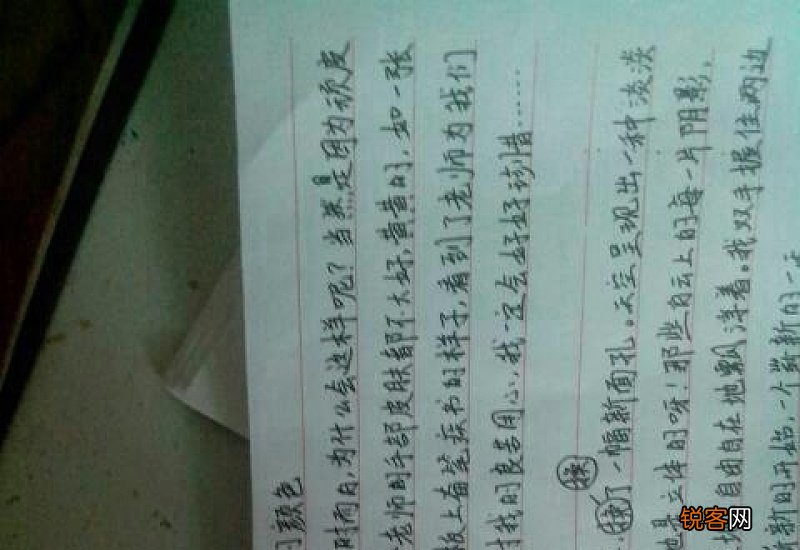 颜色
时而白,为什么会这样呢?当然是因为顽皮
老师的手部皮肤都不大好,黄黄的,如一张
板上奋笔疾书的样子,看到了老师为我们
我的良苦用心,我一定会好好珍惜……
换
换了一幅新面孔。天空呈现出一种淡淡
是立体的呀!那些白云上的每一片阴影,
自由自在地飘浮着。我双手握住两边
新的开始,一个崭新的一天
锐客网